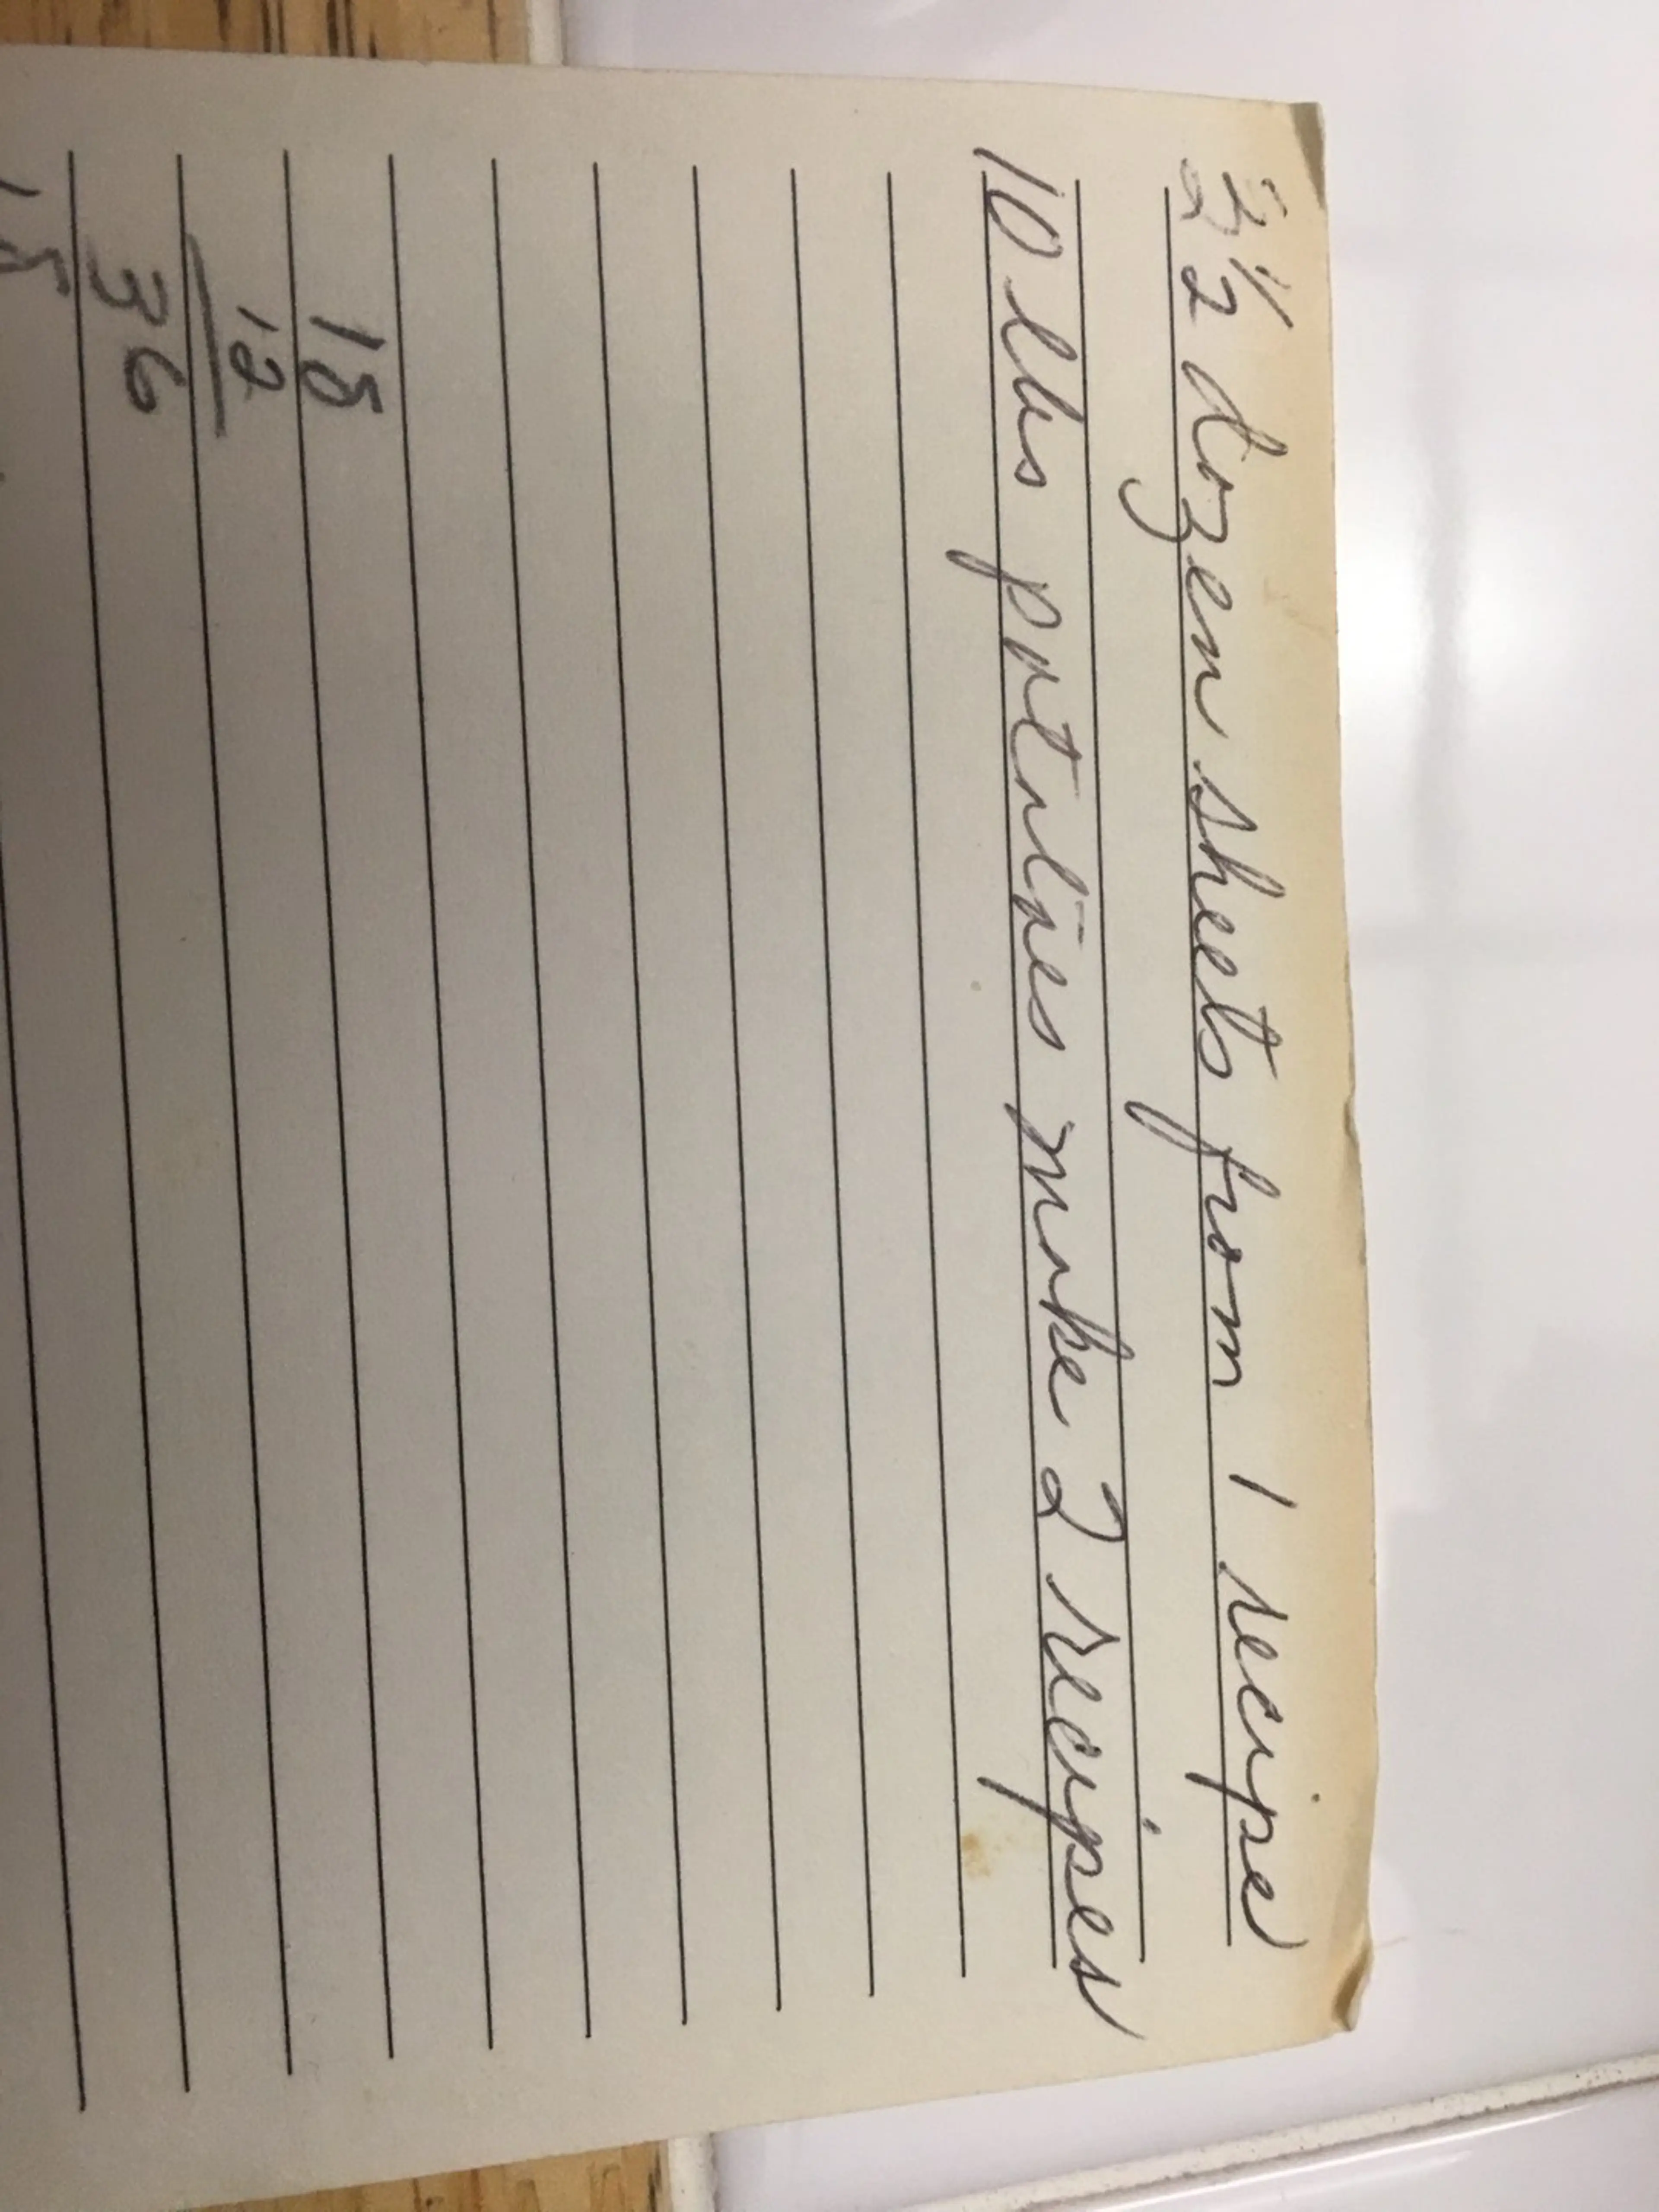 ½ dozen sheets from 1 recipe
10 lbs potatoes make 2 recipes
18
12
36
18